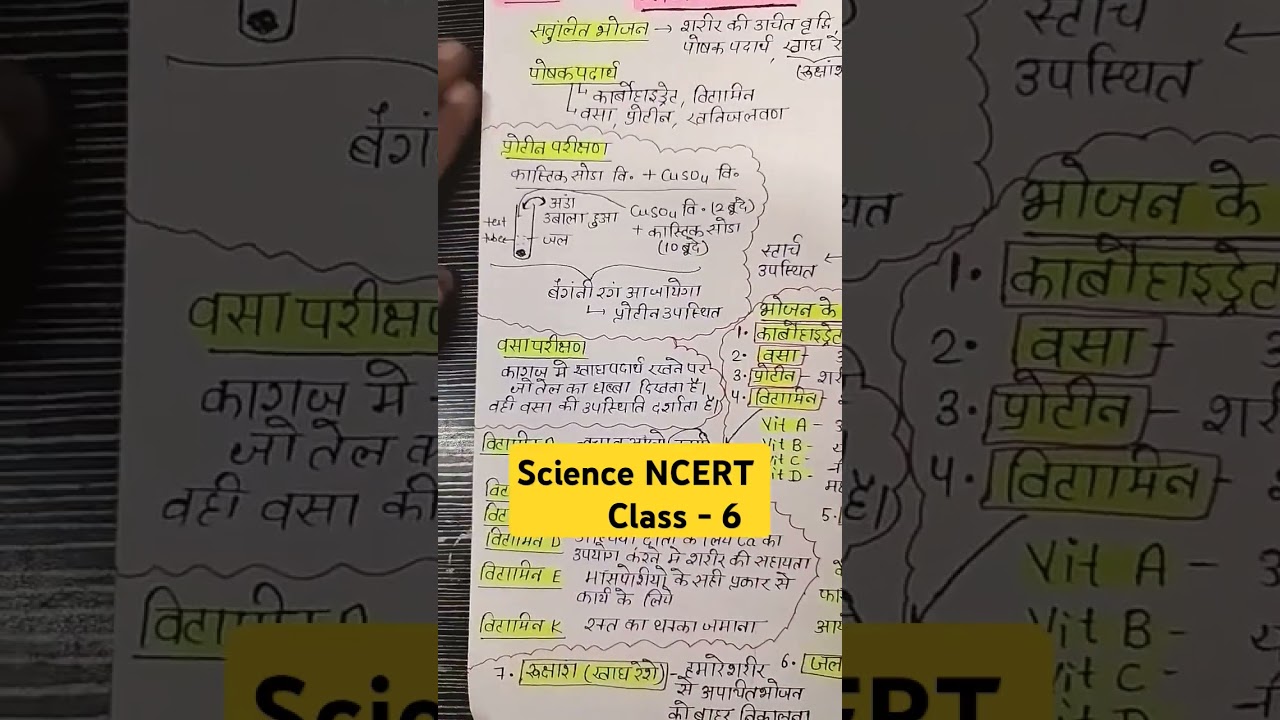 सतुंलित भोजन → शरीर की उचित वृद्धि,
पोषक पदार्थ, खाद्य रे
(रूक्षांश
पोषक पदार्थ
कार्बोहाइड्रेट, विटामिन
वसा, प्रोटीन, खनिजलवण
प्रोटीन परीक्षण
कास्टिक सोडा वि॰ + CuSO4 वि॰
अंडा
उबाला हुआ
test
tube
जल
CuSO4 वि॰ (2 बूँदे)
+ कास्टिक सोडा
(10 बूँदे)
बैंगनी रंग आ जायेगा
↳ प्रोटीन उपस्थित
वसा परीक्षण
कागज़ मे खाद्य पदार्थ रखने पर
जो तेल का धब्बा दिखता है।
वही वसा की उपस्थिति दर्शाता है।)
Science NCERT
Class - 6
विटामिन D
उपयोग करने मे शरीर की सहायता
विटामिन E मांसपेशीयों के सही प्रकार से
कार्य के लिये
विटामिन K रक्त का थक्का जमाना
7. रूक्षांश (खाद्य रेशे) - हमारे शरीर
से अपाचित भोजन
को बाहर निकालना
स्टार्च
उपस्थित
भोजन के
1. कार्बोहाइड्रेट
2. वसा -
3. प्रोटीन - शर
4. विटामिन -
Vit A -
Vit B -
Vit C -
Vit D -
6. जल
स्टार्च
उपस्थित
भोजन के
1. कार्बोहाइड्रेट
2. वसा
3. प्रोटीन - शर
4. विटामिन -
Vit A -
Vit B -
Vit C -
बैंग
वसा परीक्षण
कागज़ मे
जो तेल
वही वसा की